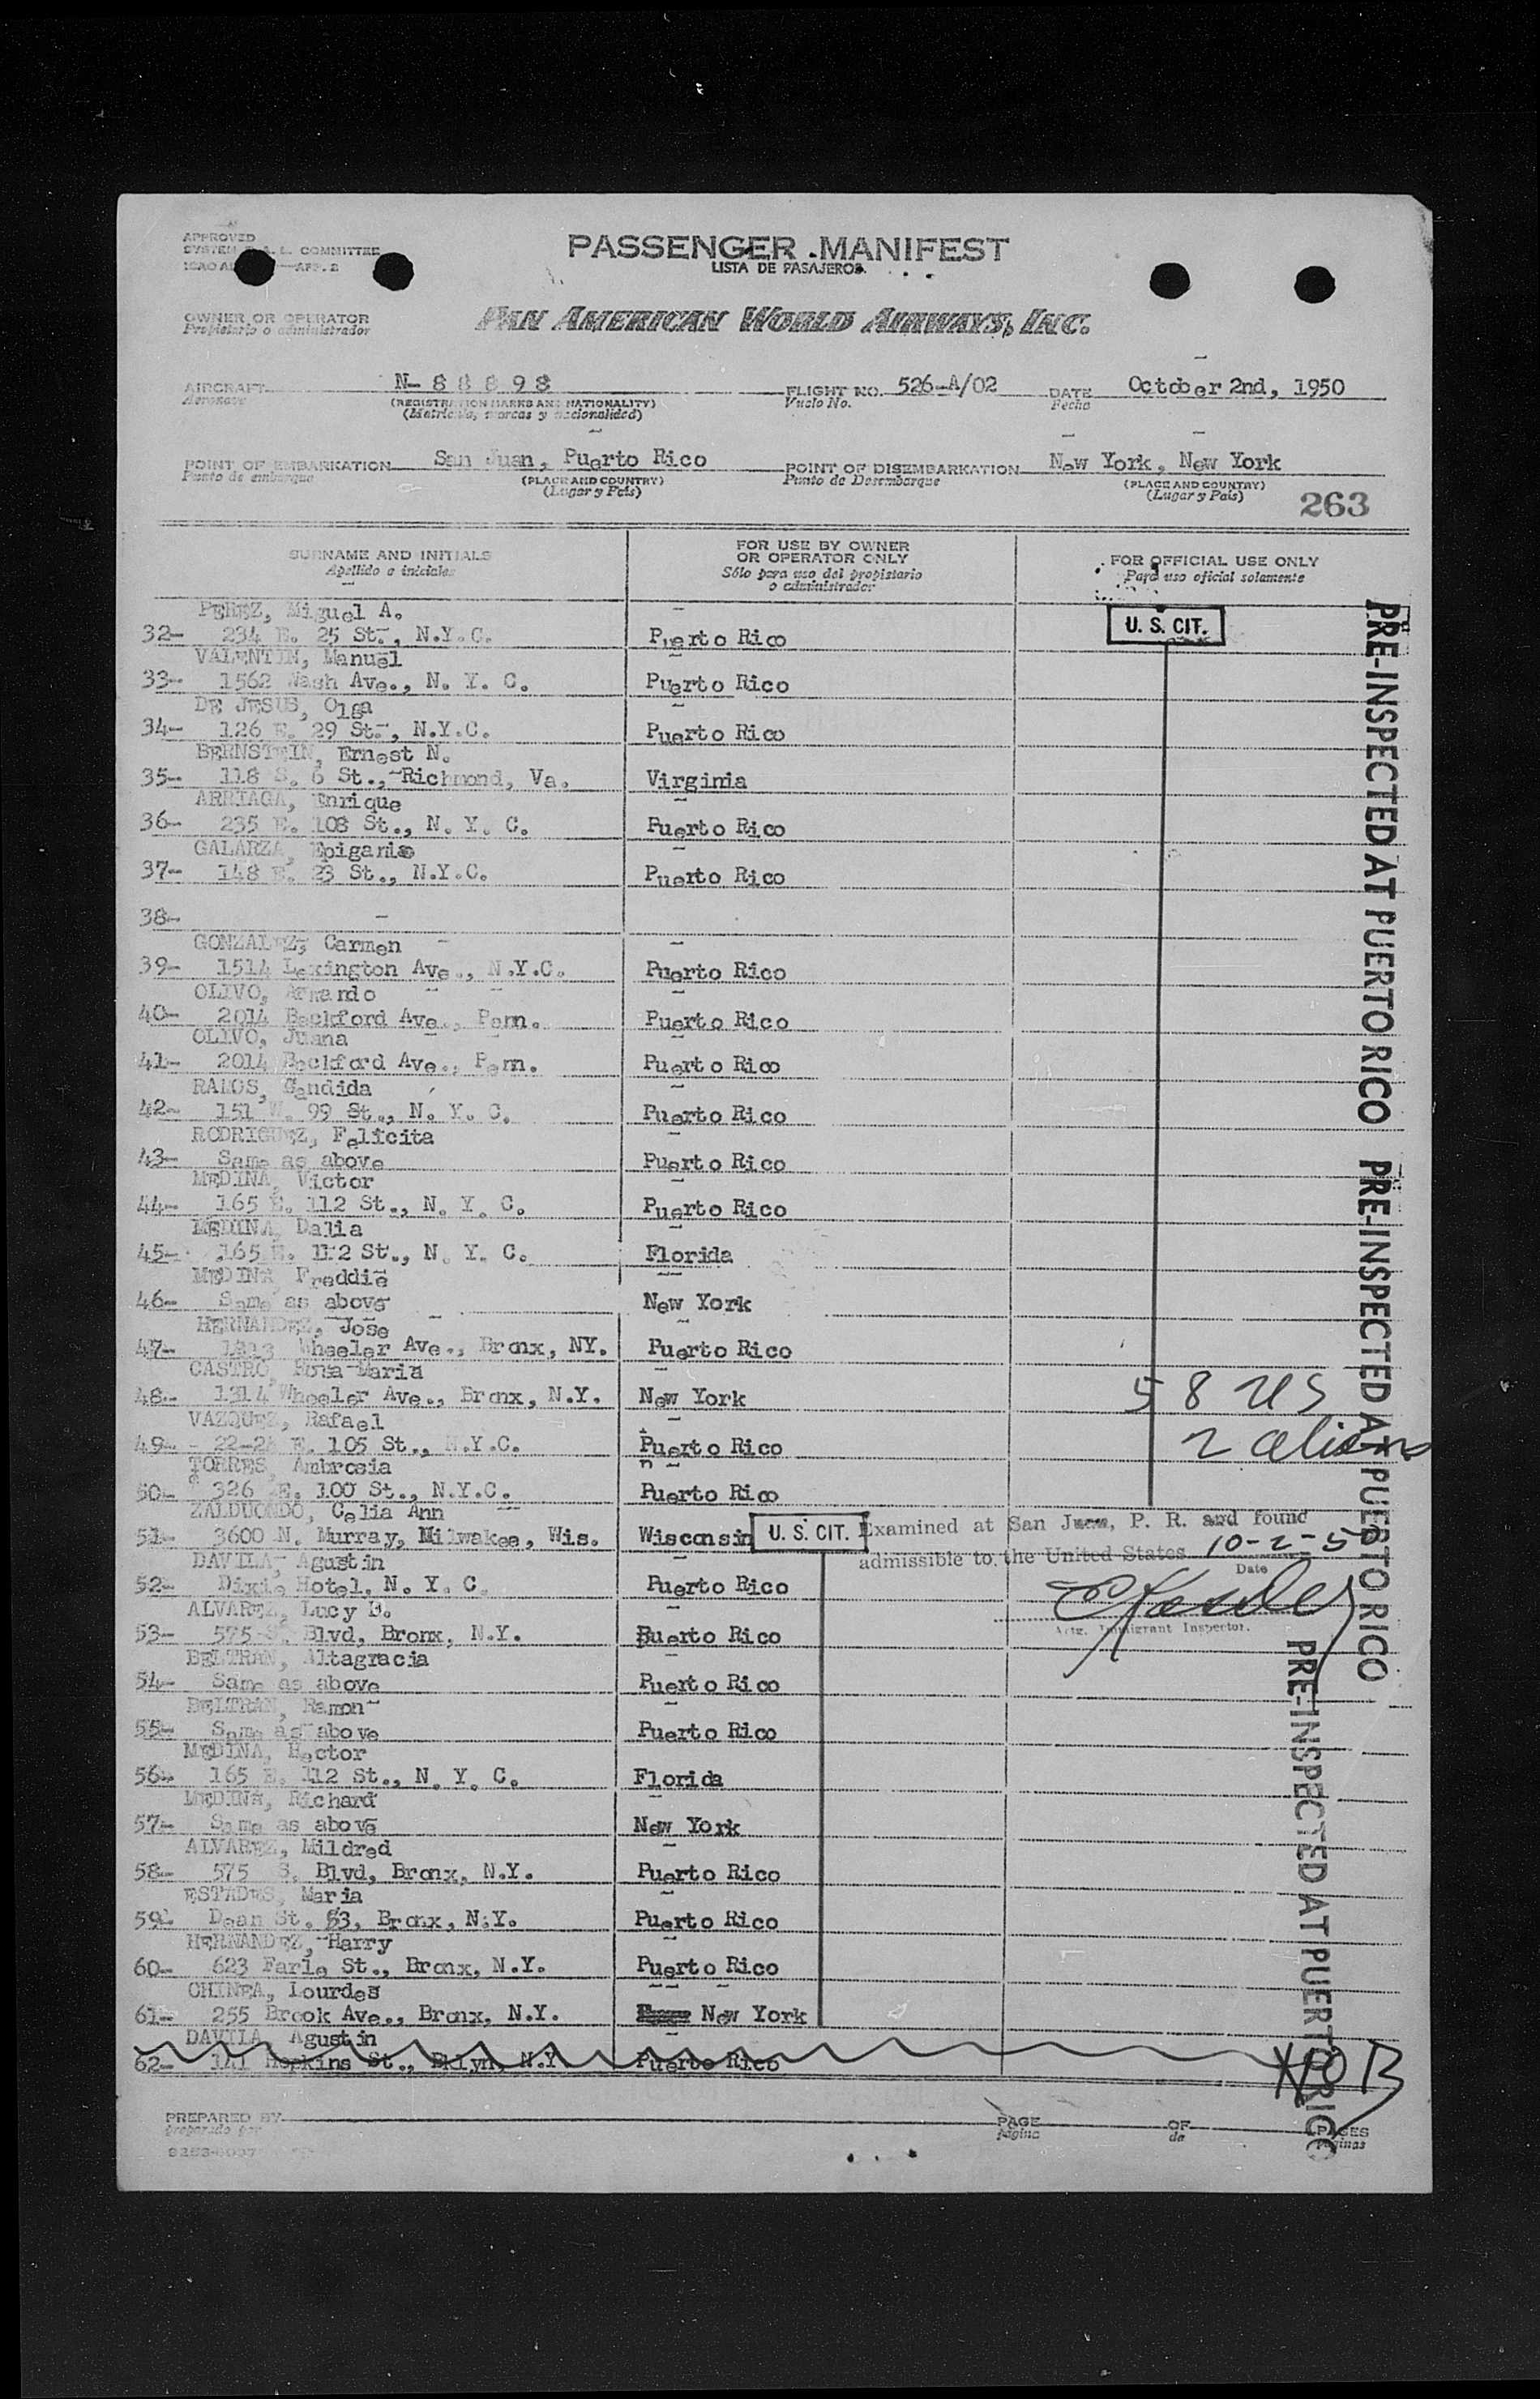 APPROVED
PASSENGER MANIFEST
SYSTEM COMMITTEE
LISTA DE PASAJEROS
OWNER OR OPERATOR
Propietario o administrador
PAN AMERICAN WORLD AIRWAYS, INC.
AIRCRAFT N-88898 FLIGHT NO. 526-A/02 DATE October 2nd, 1950
Aeronave (REGISTRATION MARKS AND NATIONALITY) Vuelo No. Fecha
(Matricula, marcas y nacionalidad)
POINT OF EMBARKATION San Juan, Puerto Rico POINT OF DISEMBARKATION New York, New York
Punto de embarque (PLACE AND COUNTRY) Punto de Desembarque (PLACE AND COUNTRY)
(Lugar y País) (Lugar y País)
263
SURNAME AND INITIALS
Apellido e iniciales
FOR USE BY OWNER
OR OPERATOR ONLY
Sólo para uso del propietario
o administrador
FOR OFFICIAL USE ONLY
Para uso oficial solamente
PEREZ, Miguel A.
32- 234 E. 25 St., N.Y.C. Puerto Rico U. S. CIT.
VALENTIN, Manuel
33- 1562 Wash Ave., N. Y. C. Puerto Rico
DE JESUS, Olga
34- 126 E. 29 St., N.Y.C. Puerto Rico
BERNSTEIN, Ernest N.
35- 118 S. 6 St., Richmond, Va. Virginia
ARRIAGA, Enrique
36- 235 E. 108 St., N. Y. C. Puerto Rico
GALARZA, Epiganio
37- 148 E. 23 St., N.Y.C. Puerto Rico
38-
GONZALEZ, Carmen
39- 1514 Lexington Ave., N.Y.C. Puerto Rico
OLIVO, Armando
40- 2014 Beckford Ave., Penn. Puerto Rico
OLIVO, Juana
41- 2014 Beckford Ave., Penn. Puerto Rico
RAMOS, Candida
42- 151 W. 99 St., N. Y. C. Puerto Rico
RODRIGUEZ, Felicita
43- Same as above Puerto Rico
MEDINA, Victor
44- 165 E. 112 St., N. Y. C. Puerto Rico
MEDINA, Dalia
45- 165 E. 112 St., N. Y. C. Florida
MEDINA Freddie
46- Same as above New York
HERNANDEZ, Jose
47- 1313 Wheeler Ave., Bronx, NY. Puerto Rico
CASTRO, Rosa Maria
48- 1314 Wheeler Ave., Bronx, N.Y. New York 58 US
VAZQUEZ, Rafael
49- 22-24 E. 105 St., N.Y.C. Puerto Rico 2 aliens
TORRES, Ambrosia
50- 326 E. 100 St., N.Y.C. Puerto Rico
ZALDUONDO, Celia Ann
51- 3600 N. Murray, Milwakee, Wis. Wisconsin U. S. CIT. Examined at San Juan, P. R. and found
admissible to the United States 10-2-50
Date
DAVILA, Agustin
52- Dixie Hotel, N. Y. C. Puerto Rico
ALVAREZ, Lucy D.
Actg. Immigrant Inspector.
53- 575 S. Blvd, Bronx, N.Y. Puerto Rico
BELTRAN, Altagracia
54- Same as above Puerto Rico
BELTRAN, Ramon
55- Same as above Puerto Rico
MEDINA, Hector
56- 165 E. 112 St., N. Y. C. Florida
MEDINA, Richard
57- Same as above New York
ALVAREZ, Mildred
58- 575 S. Blvd, Bronx, N.Y. Puerto Rico
ESTADES, Maria
59- Dean St. 53, Bronx, N.Y. Puerto Rico
HERNANDEZ, Harry
60- 623 Farle St., Bronx, N.Y. Puerto Rico
CHINEA, Lourdes
61- 255 Brook Ave., Bronx, N.Y. New York
DAVILA, Agustin
62- 141 Hopkins St., Bklyn, N.Y. Puerto Rico NOB
PREPARED BY PAGE OF PAGES
preparado por página de páginas
PRE-INSPECTED AT PUERTO RICO
PRE-INSPECTED AT PUERTO RICO
PRE-INSPECTED AT PUERTO RICO